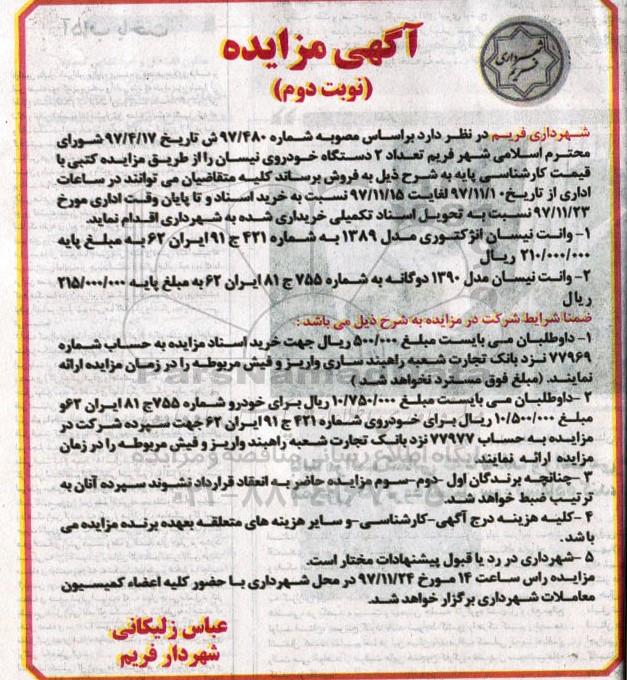 آگهی مزایده
(نوبت دوم)
شهرداری فریم
شهرداری فریم در نظر دارد براساس مصوبه شماره ۹۷/۴۸۰ ش تاریخ ۹۷/۴/۱۷ شورای
محترم اسلامی شهر فریم تعداد ۲ دستگاه خودروی نیسان را از طریق مزایده کتبی با
قیمت کارشناسی پایه به شرح ذیل به فروش برساند کلیه متقاضیان می توانند در ساعات
اداری از تاریخ ۹۷/۱۱/۱۰ لغایت ۹۷/۱۱/۱۵ نسبت به خرید اسناد و تا پایان وقت اداری مورخ
۹۷/۱۱/۲۳ نسبت به تحویل اسناد تکمیلی خریداری شده به شهرداری اقدام نماید.
۱- وانت نیسان انژکتوری مدل ۱۳۸۹ به شماره ۴۲۱ ج ۹۱ ایران ۶۲ به مبلغ پایه
۲۱۰/۰۰۰/۰۰۰ ریال
۲- وانت نیسان مدل ۱۳۹۰ دوگانه به شماره ۷۵۵ ج ۸۱ ایران ۶۲ به مبلغ پایه ۲۱۵/۰۰۰/۰۰۰
ریال
ضمنا شرایط شرکت در مزایده به شرح ذیل می باشد :
۱- داوطلبان می بایست مبلغ ۵۰۰/۰۰۰ ریال جهت خرید اسناد مزایده به حساب شماره
۷۷۹۶۹ نزد بانک تجارت شعبه راهبند ساری واریز و فیش مربوطه را در زمان مزایده ارائه
نمایند. (مبلغ فوق مسترد نخواهد شد)
۲- داوطلبان می بایست مبلغ ۱۰/۷۵۰/۰۰۰ ریال برای خودرو شماره ۷۵۵ ج ۸۱ ایران ۶۲ و
مبلغ ۱۰/۵۰۰/۰۰۰ ریال برای خودروی شماره ۴۲۱ ج ۹۱ ایران ۶۲ جهت سپرده شرکت در
مزایده به حساب ۷۷۹۷۷ نزد بانک تجارت شعبه راهبند واریز و فیش مربوطه را در زمان
مزایده ارائه نمایند.
۳- چنانچه برندگان اول -دوم-سوم مزایده حاضر به انعقاد قرارداد نشوند سپرده آنان به
ترتیب ضبط خواهد شد.
۴- کلیه هزینه درج آگهی-کارشناسی-و سایر هزینه های متعلقه بعهده برنده مزایده می
باشد.
۵- شهرداری در رد یا قبول پیشنهادات مختار است.
مزایده راس ساعت ۱۴ مورخ ۹۷/۱۱/۲۴ در محل شهرداری با حضور کلیه اعضاء کمیسیون
معاملات شهرداری برگزار خواهد شد.
عباس زلیکانی
شهردار فریم